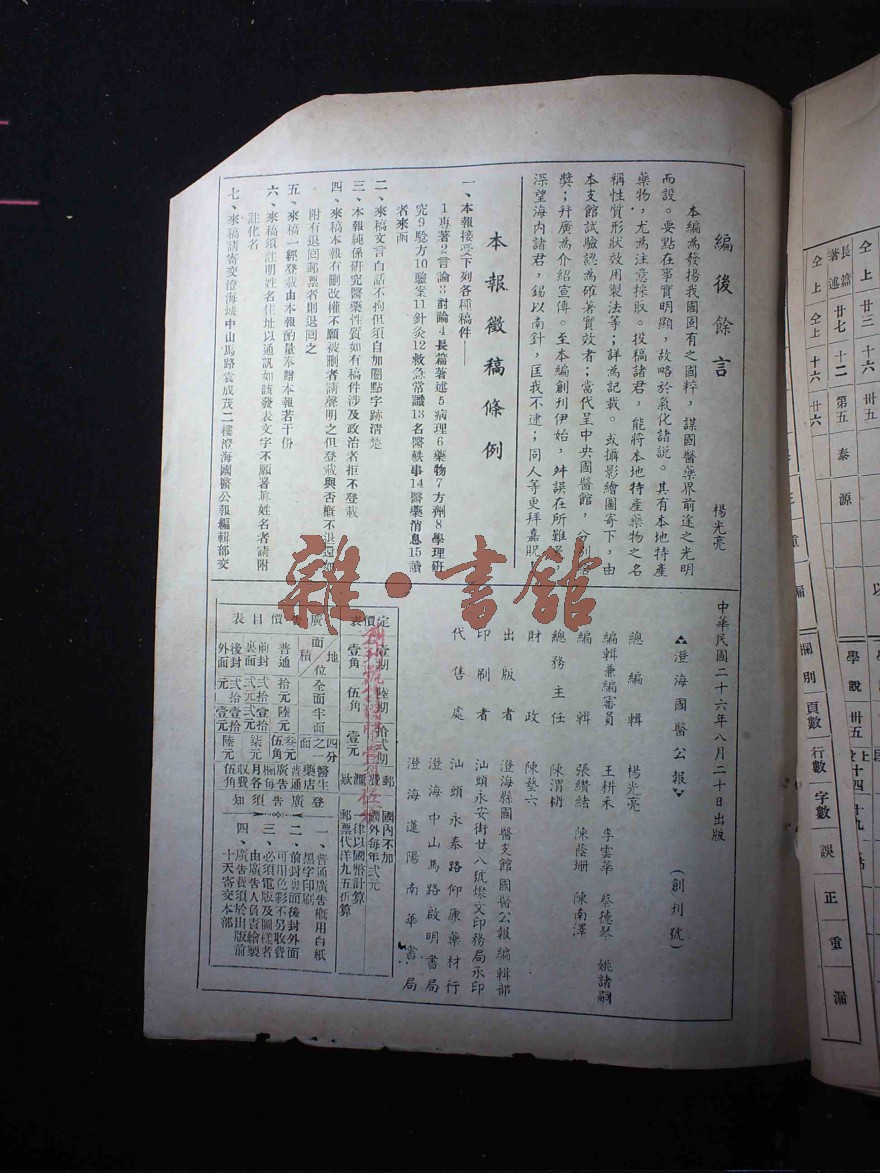 編後餘言
楊光亮
本編為發揚我國固有之國粹，謀國醫藥界前途之光明
而設。要點在事實明顯，故略於氣化諸說。其有本地特產
藥物，尤為注意採取。投稿諸君，能將本地特產藥物之名
稱性質形狀效用製法等；詳為記載。或攝影繪圖寄下，由
本支館試驗認為確著實效者；當代呈中央國醫館，分別
獎；幷廣為介紹宣傳。至本編創刊伊始，舛誤在所難
深望海內諸君，錫以南針，匡我不逮；同人等更拜嘉貺
本報徵稿條例
一、本報接受下列各種稿件——
1專著2言論3討論4長篇著述5病理6藥物7方劑8學理研
究9驗方10驗案11針灸12救急常識13名醫軼事14醫藥消息15讀
者來函
二、來稿文言白話不拘但須自加圈點字跡清楚
三、本報純係研究醫藥性質如有稿件涉及政治者拒不登載
四、來稿本報有刪改權不願被刪者請聲明之但登載與否概不退還如
附有退回郵票者則退回之
五、來稿一經登載由本報酌量奉贈本報若干份
六、來稿須註明姓名住址以通訊如該發表文字不願署眞姓名者請附
註化名
七、來稿請寄交澄海城中山馬路雲成茂二樓澄海國醫公報編輯部交
中華民國二十六年八月二十日出版
澄海國醫公報
（創刊號）
總編輯 楊光亮
編輯兼編審員 王枬禾 李雲華 蔡德琴 姚諸嗣
編輯 張纘緒 陳蔭珊 陳南澤
總務主任 陳渭
財政 陳藝六
出版者 澄海縣國醫支館國醫公報編輯部
印刷者 汕頭永安街廿八號燦文印務局承印
代售處 汕頭永泰路仰康藥材行
澄海中山馬路啟明書局
澄海道陽南華書局
定價表
壹期 陸期 拾弍期
壹角 伍角 壹元
郵費
國內不加
國外每年弍元
滙欵
一律以國幣計算
郵票代洋九五折算
創刊號
廣告價目表
地位 面積 全面 半面 四分之一面
普通 拾元 陸元 叁元伍角
前封裏面 弍拾元 壹拾弍元 柒元
後封外面 弍拾元 壹拾壹元 陸元
醫生藥店普通廣告欄每月各收費伍角
登廣告須知
一、普通廣告概用白紙
黑字印刷
二、前封裏面後封外面
可用色彩不另收費
三、必須電版及圖樣者
由廣告人負責繪製
四、廣告費須於出版前
十天寄交本部
雜·書館
長篇著述 廿七 十二 第五 泰 源
仝上 廿三 十六 卅五
仝上 仝上 十六 廿六
欄別 頁數 行數 字數 誤 正 重 漏
學說 卅五